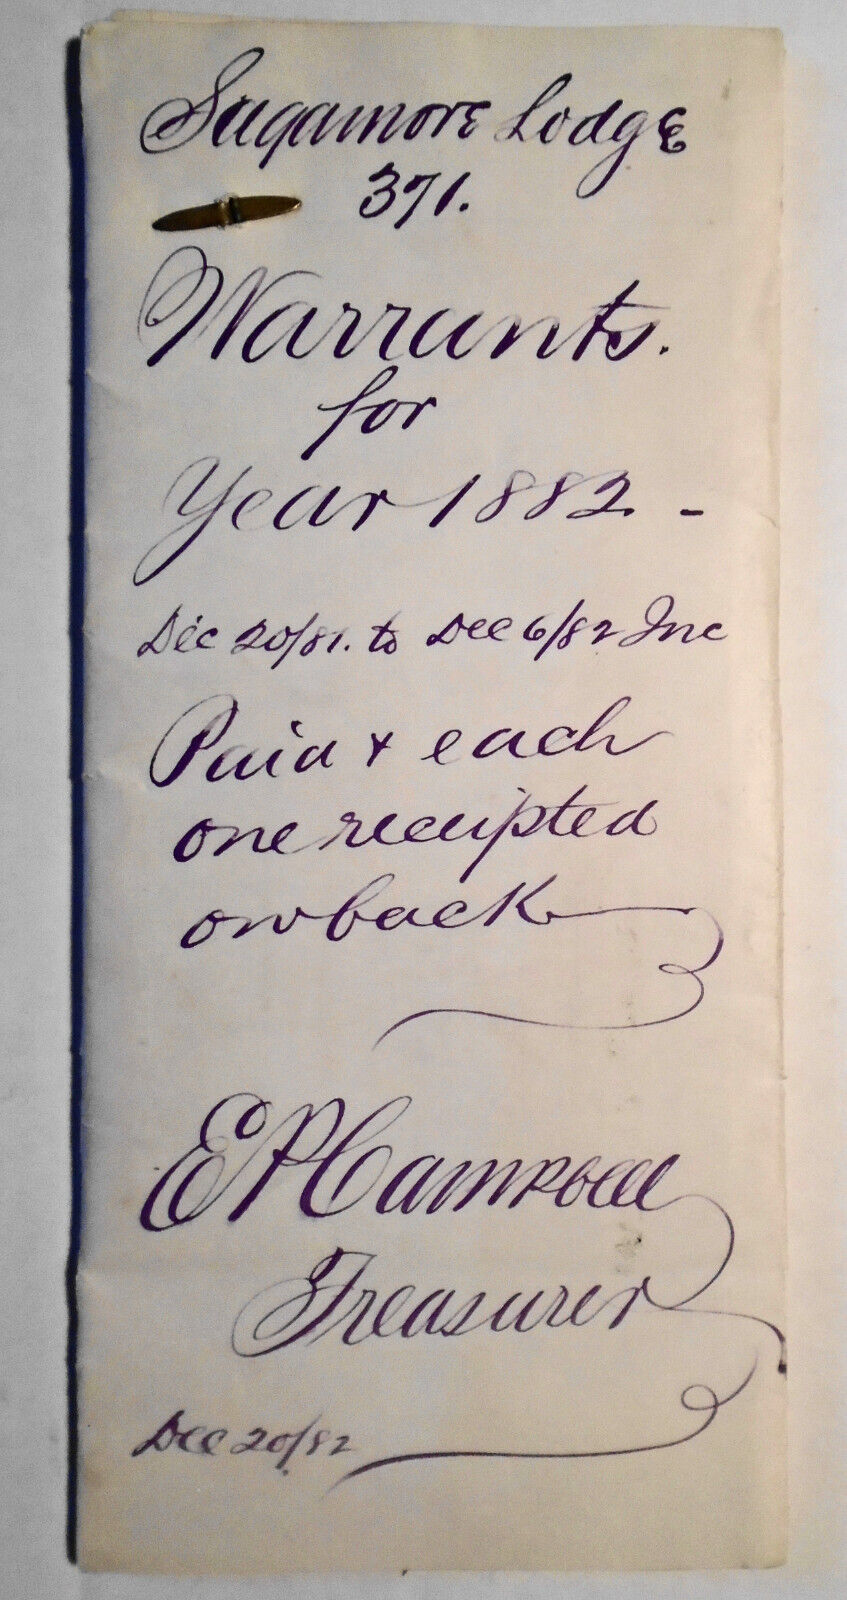 Sagamore Lodge
371.
Warrants.
for
Year 1882 -
Dec 20/81. to Dec 6/82 Inc
Paid & each
one receipted
on back
E P Campbell
Treasurer
Dec 20/82